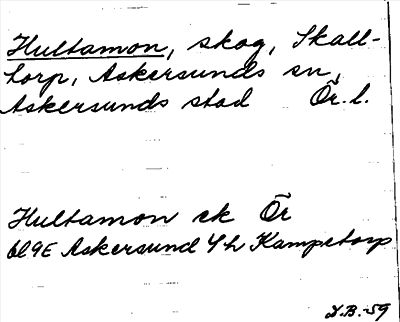 Hultamon, skog, Skall-
torp, Askersunds sn,
Askersunds stad Ör. l.
Hultamon ek Ör
6l9E Askersund 4h Kampetorp
D.B. -59